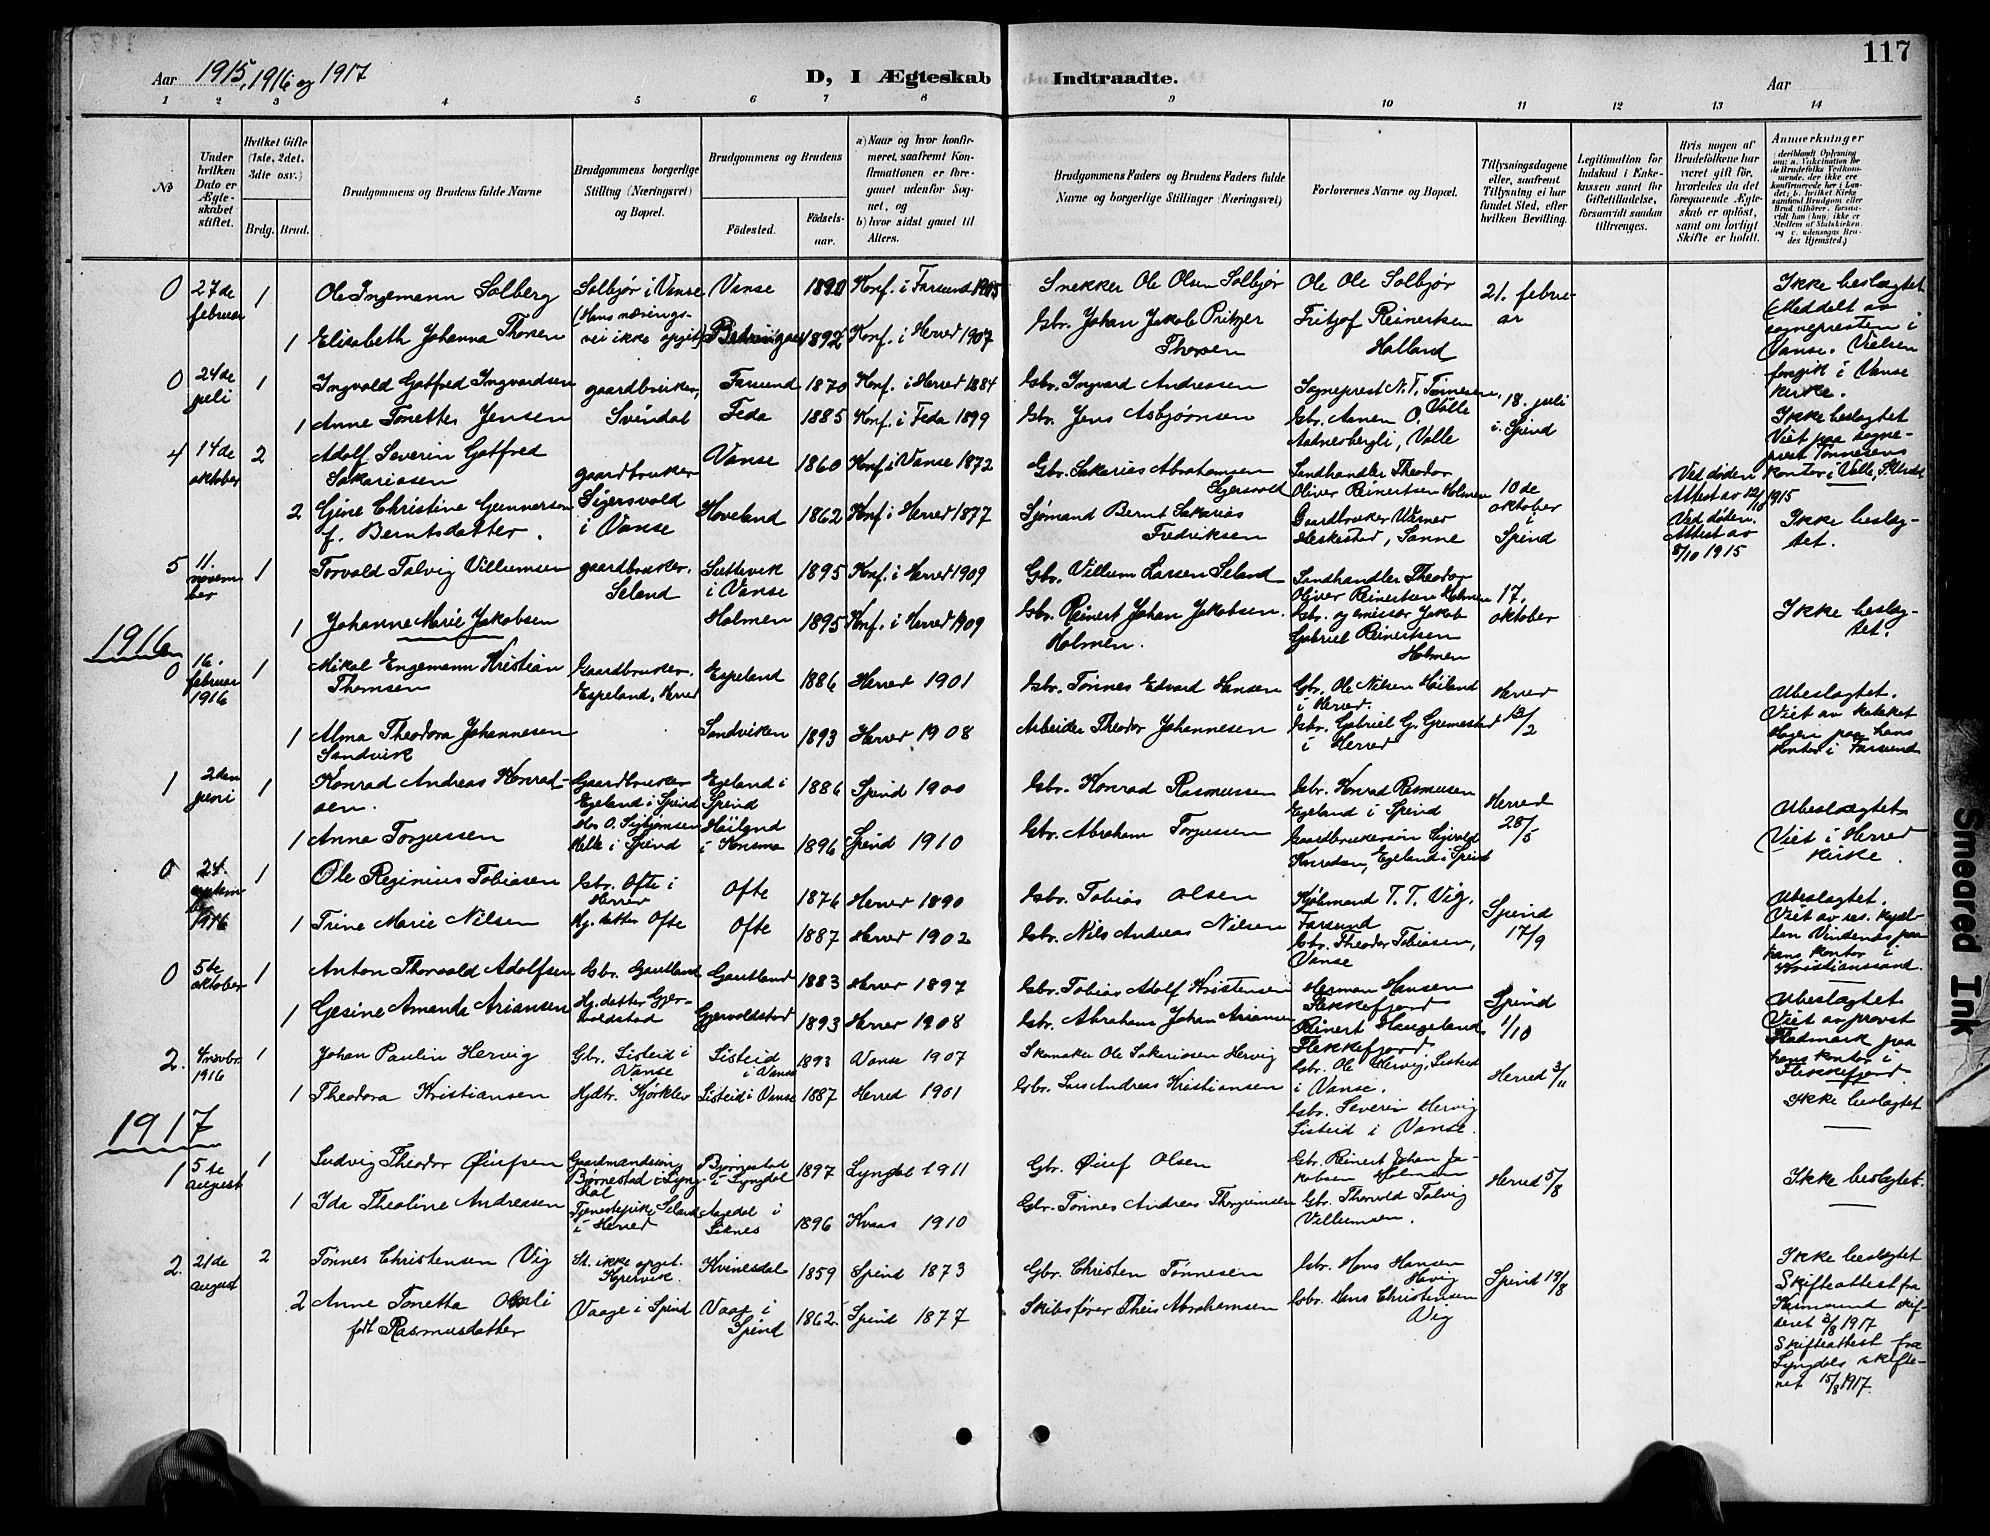 117
Aar 1915, 1916 og 1917
D, I Ægteskab Indtraadte.
Aar
1 2 3 4 5 6 7 8 9 10 11 12 13 14
No
Under hvilken Dato er Ægteskabet stiftet.
Hvilket Gifte (1ste, 2det, 3die osv.)
Brdg. Brud.
Brudgommens og Brudens fulde Navne
Brudgommens borgerlige Stilling (Næringsvei) og Bopæl.
Brudgommens og Brudens
Fødested.
Fødselsaar.
a) Naar og hvor konfirmeret, saafremt Konfirmationen er foregaaet udenfor Sognet, og
b) hvor sidst gaaet til Alters.
Brudgommens Faders og Brudens Faders fulde Navne og borgerlige Stillinger (Næringsvei)
Forlovernes Navne og Bopæl.
Tillysningsdagene eller, saafremt Tillysning ei har fundet Sted, efter hvilken Bevilling.
Legitimation for Indskud i Enkekassen samt for Giftetilladelse, forsaavidt saadan tiltrænges.
Hvis nogen af Brudefolkene har været gift før, hvorledes da det foregaaende Ægteskab er opløst, samt om lovligt Skifte er holdt.
Anmerkninger
0 27de februar 1 Ole Ingemann Solberg Solbjør i Vanse Vanse 1890 Konf. i Farsund 1905 Snekker Ole Olsen Solbjør Ole Ole Solbjør 21. februar Ikke beslægtet
(Hans næringsvei ikke opgit) Meddelt av sognepresten i Vanse. Vielsen foregik i Vanse kirke.
1 Elisabeth Johanna Thorsen 1892 Konf. i Herred 1907 Gbr. Johan Jakob Pritzer Thorsen Fritjof Reinertsen Halland
0 24de juli 1 Ingvald Gotfred Ingvardsen gaardbruker, Svindal Farsund 1870 Konf. i Herred 1884 Gbr. Ingvard Andreasen Sogneprest N. T. Tønnesen, Valle 18. juli i Spind Ikke beslægtet
1 Anne Tonette Jensen Feda 1885 Konf. i Feda 1899 Gbr. Jens Asbjørnsen Gbr. Aanen O. Aadnebergli, Valle Viet paa sogneprest Tønnesens kontor i Valle
4 14de oktober 2 Adolf Severin Gotfred Sakariasen gaardbruker Sigersvold i Vanse Vanse 1860 Konf i Vanse 1872 Gbr. Sakarias Abrahamsen Sigersvold Landhandler Theodor Oliver Reinertsen Holmen 10de oktober i Spind Ved døden Attest av 12/10 1915
2 Gine Christine Gunnarsen f. Berntsdatter. Hoveland 1862 Konf i Herred 1877 Sjømand Bernt Sakarias Fredriksen Gaardbruker Werner Heskestad, Sanne Ved døden. Attest av 8/10 1915 Ikke beslægtet.
5 11. november 1 Torvald Talvig Villumsen gaardbruker. Seland i Vanse 1895 Konf. i Herred 1909 Gbr. Villum Larsen Seland Landhandler Theodor Oliver Reinertsen Holmen 17. oktober
1 Johanne Marie Jakobsen Holmen 1895 Konf. i Herred 1909 Gbr. Reinert Johan Jakobsen. Holmen. Gbr. og emissær Jakob Gabriel Reinertsen Holmen Ikke beslægtet.
1916
0 16. februar 1916 1 Mikal Engemann Kristian Thomsen Gaardbruker. Espeland, Herred Espeland 1886 Herred 1901 Gbr. Tønnes Edvard Hansen Gbr. Ole Nilsen Høiland i Herred. Herred 13/2 Ubeslægtet.
1 Alma Theodora Johannesen Sandvik Sandviken 1893 Herred 1908 Arbeider Theodor Johannesen Gbr. Gabriel G. Gremestad i Herred Viet av kateket Hagen paa hans kontor i Farsund
1 2den juni 1 Konrad Andreas Konradsen. Gaardbruker Egeland i Spind Egeland i Spind 1886 Spind 1900 Gbr. Konrad Rasmussen Gbr. Konrad Rasmusen Egeland i Spind Herred 28/5 Ubeslægtet
1 Anna Torgussen Hos O. Sigbjørnsen i Spind Høiland i Konsmo 1896 Spind 1910 Gbr. Abraham Torgussen Gaardbrukersøn Sigvald Konradsen, Egeland i Spind Viet i Herred kirke.
0 24. september 1916 1 Ole Reginius Tobiasen Gbr. Ofte i Herred Ofte 1876 Herred 1890 Gbr. Tobias Olsen Kjøbmand T. T. Vig, Farsund Spind 17/9 Ubeslægtet.
1 Trine Marie Nilsen Hj. datter Ofte Ofte 1887 Herred 1902 Gbr. Nils Andreas Nilsen Gbr. Theodor Tobiasen, Vanse Viet av res. kapellan Vindenes paa hans kontor i Kristianssand.
0 5te oktober 1 Anton Thorvald Adolfsen Gbr. Gautland Gautland 1883 Herred 1897 Gbr. Tobias Adolf Kristensen Herman Hansen Flekkefjord Spind 1/10 Ubeslægtet
1 Gesine Amanda Ariansen Hj. datter Gjervoldstad Gjervoldstad 1893 Herred 1908 Gbr. Abraham Johan Ariansen Reinert Haugeland Flekkefjord Viet av provst Flodmark paa hans kontor i Flekkefjord.
2. 4 novbr. 1916 1 Johan Paulin Hervig Gbr. Listeid i Vanse Listeid i Vanse 1893 Vanse 1907 Skomaker Ole Sakariasen Hervig Gbr. Ole Hervig, Listeid i Vanse. Herred 3/11
1 Theodora Kristiansen Hjdtr. Kjørklev Listeid i Vanse 1887 Herred 1901 Gbr. Lars Andreas Kristiansen Gbr. Severin Hervig Listeid i Vanse. Ikke beslægtet
1917
1 5te august 1 Ludvig Theodor Øiufsen Gaardmandssøn, Bjørnestad i Lyngdal Bjørnestad i Lyngdal 1897 Lyngdal 1911 Gbr. Øiuf Olsen Gbr. Reinert Johan Jakobsen Holmen Herred 5/8 Ikke beslægtet.
1 Ida Theoline Andreasen Tjenestepike, Seland i Herred Aagedal i 1896 Kvaas 1910 Gbr. Tønnes Andreas Thorgrimsen Gbr. Thorvald Talvig Villumsen.
2. 21de august 2 Tønnes Christensen Vig St. ikke opgit. Kjervik. Kvinesdal 1859 Spind 1873 Gbr. Christen Tønnesen Gbr. Hans Hansen Høvig Spind 19/8 Ikke beslægtet
2 Anne Tonetta født Rasmusdatter Vaage i Spind Vaage i Spind 1862 Spind 1877 Skibsfører Theis Abrahamsen Gbr. Hans Christensen Vig Skifteattest fra skifteret 2/8 1917
Skifteattest fra Lyngdals skifteret 15/8 1917.
Smeared Ink